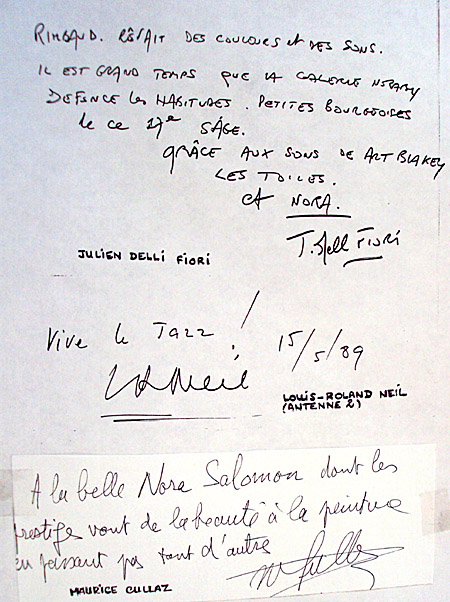 RIMBAUD. RÊVAIT DES COULEURS et DES SONS.
IL EST GRAND TEMPS QUE LA GALERIE NORARY
DEFONCE les HABITUDES. PETITES BOURGEOISES
de ce 17e SAGE.
GRÂCE AUX SONS DE ART BLAKEY
LES TOILES.
et NORA.
J. Dell FIORI
JULIEN DELLI FIORI
Vive le Jazz !
15/5/89
LRNeil
LOUIS-ROLAND NEIL
(ANTENNE 2)
A la belle Nora Salomon dont les
prestiges vont de la beauté à la peinture
en passant par tant d'autre
MAURICE CULLAZ